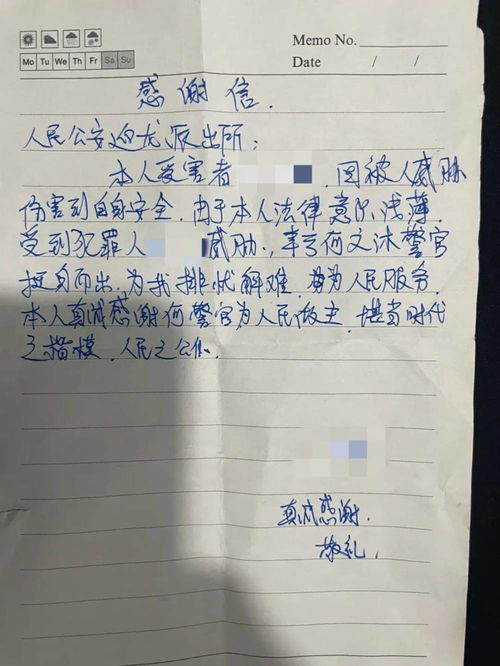 Memo No.
Mo Tu We Th Fr Sa Su
Date / /
感谢信.
人民公安迎龙派出所:
本人受害者 因被人威胁
伤害到自身安全,由于本人法律意识浅薄,
受到犯罪人 威胁,幸亏何文沐警官
挺身而出,为我排忧解难,为人民服务,
本人真诚感谢何警官为人民做主,堪当时代
之楷模,人民之公仆.
真诚感谢.
敬礼.